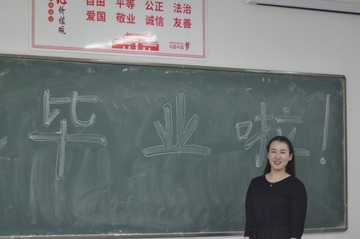 价值观
自由 平等 公正 法治
爱国 敬业 诚信 友善
毕业啦!